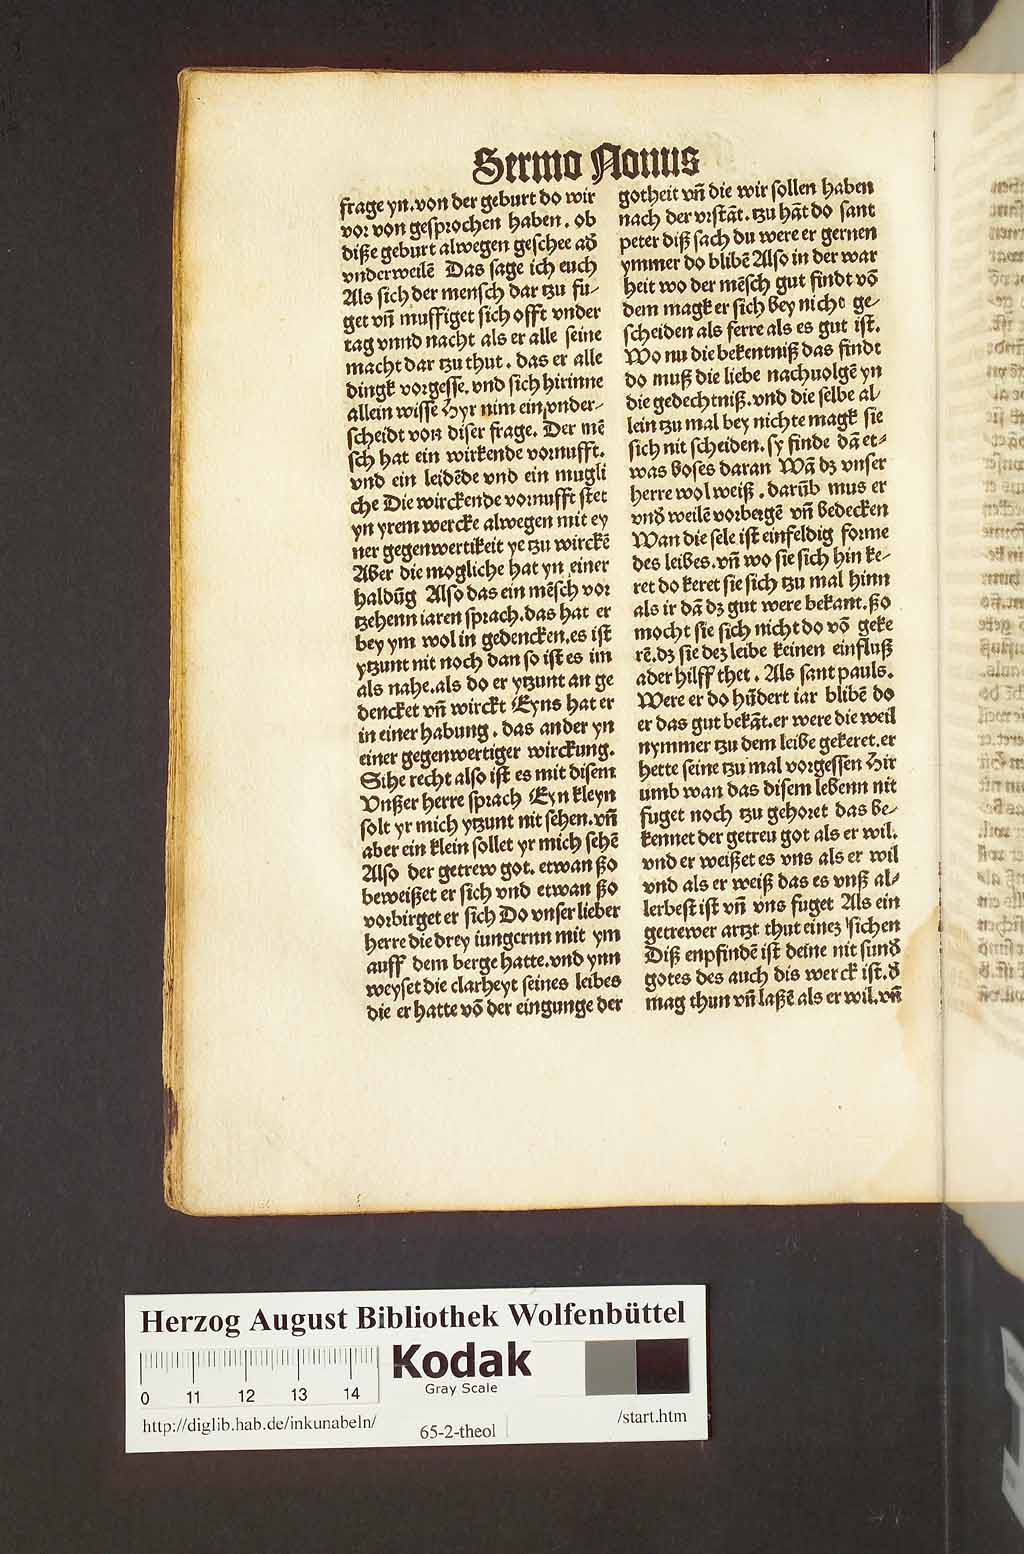 Sermo Nonus
frage yn. von der geburt do wir
vor von gesprochen haben. ob
diße geburt alwegen geschee ad̕
vnderweilē Das sage ich euch
Als sich der mensch dar tzu fu-
get vn̄ muffiget sich offt vnder
tag vnnd nacht als er alle seine
macht dar tzu thut. das er alle
dingk vorgesse. vnd sich hirinne
allein wisse Hyr nim ein vnder-
scheidt von diser frage. Der mē
sch hat ein wirkende vornufft.
vnd ein leidēde vnd ein mugli
che Die wirckende vornufft stet
yn yrem wercke alwegen mit ey
ner gegenwertikeit ye tzu wirckē
Aber die mogliche hat yn einer
haldūg Also das ein mēsch vor
tzehenn iaren sprach. das hat er
bey ym wol in gedencken. es ist
ytzunt nit noch dan so ist es im
als nahe. als do er ytzunt an ge
dencket vn̄ wirckt Eyns hat er
in einer habung. das ander yn
einer gegenwertiger wirckung.
Sihe recht also ist es mit disem
Vnßer herre sprach Eyn kleyn
solt yr mich ytzunt nit sehen. vn̄
aber ein klein sollet yr mich sehē
Also der getrew got. etwan ßo
beweißet er sich vnd etwan ßo
vorbirget er sich Do vnser lieber
herre die drey iungernn mit ym
auff dem berge hatte. vnd ynn
weyset die clarheyt seines leibes
die er hatte vō der eingunge der
gotheit vn̄ die wir sollen haben
nach der vrstāt. tzu hāt do sant
peter diß sach du were er gernen
ymmer do blibē Also in der war
heit wo der mēsch gut findt vō
dem magk er sich bey nicht ge-
scheiden als ferre als es gut ist.
Wo nu die bekentniß das findt
do muß die liebe nachuolgē yn
die gedechtniß. vnd die selbe al
lein tzu mal bey nichte magk sie
sich nit scheiden. sy finde dā et-
was boses daran Wā dz vnser
herre wol weiß. darūb mus er
vnd̕ weilē vorbergē vn̄ bedecken
Wan die sele ist einfeldig forme
des leibes. vn̄ wo sie sich hin ke-
ret do keret sie sich tzu mal hinn
als ir dā dz gut were bekant. ßo
mocht sie sich nicht do vō geke
rē. dz sie dez leibe keinen einfluß
ader hilff thet. Als sant pauls.
Were er do hūdert iar blibē do
er das gut bekāt. er were die weil
nymmer tzu dem leibe gekeret. er
hette seine tzu mal vorgessen Hir
umb wan das disem lebenn nit
fuget noch tzu gehoret das be-
kennet der getreu got als er wil.
vnd er weißet es vns als er wil
vnd als er weiß das es vnß al-
lerbest ist vn̄ vns fuget Als ein
getrewer artzt thut einez sichen
Diß enpfindē ist deine nit sund̕
gotes des auch dis werck ist. d̕
mag thun vn̄ laßē als er wil. vn̄
Herzog August Bibliothek Wolfenbüttel
0 11 12 13 14
Kodak
Gray Scale
http://diglib.hab.de/inkunabeln/
65-2-theol
/start.htm